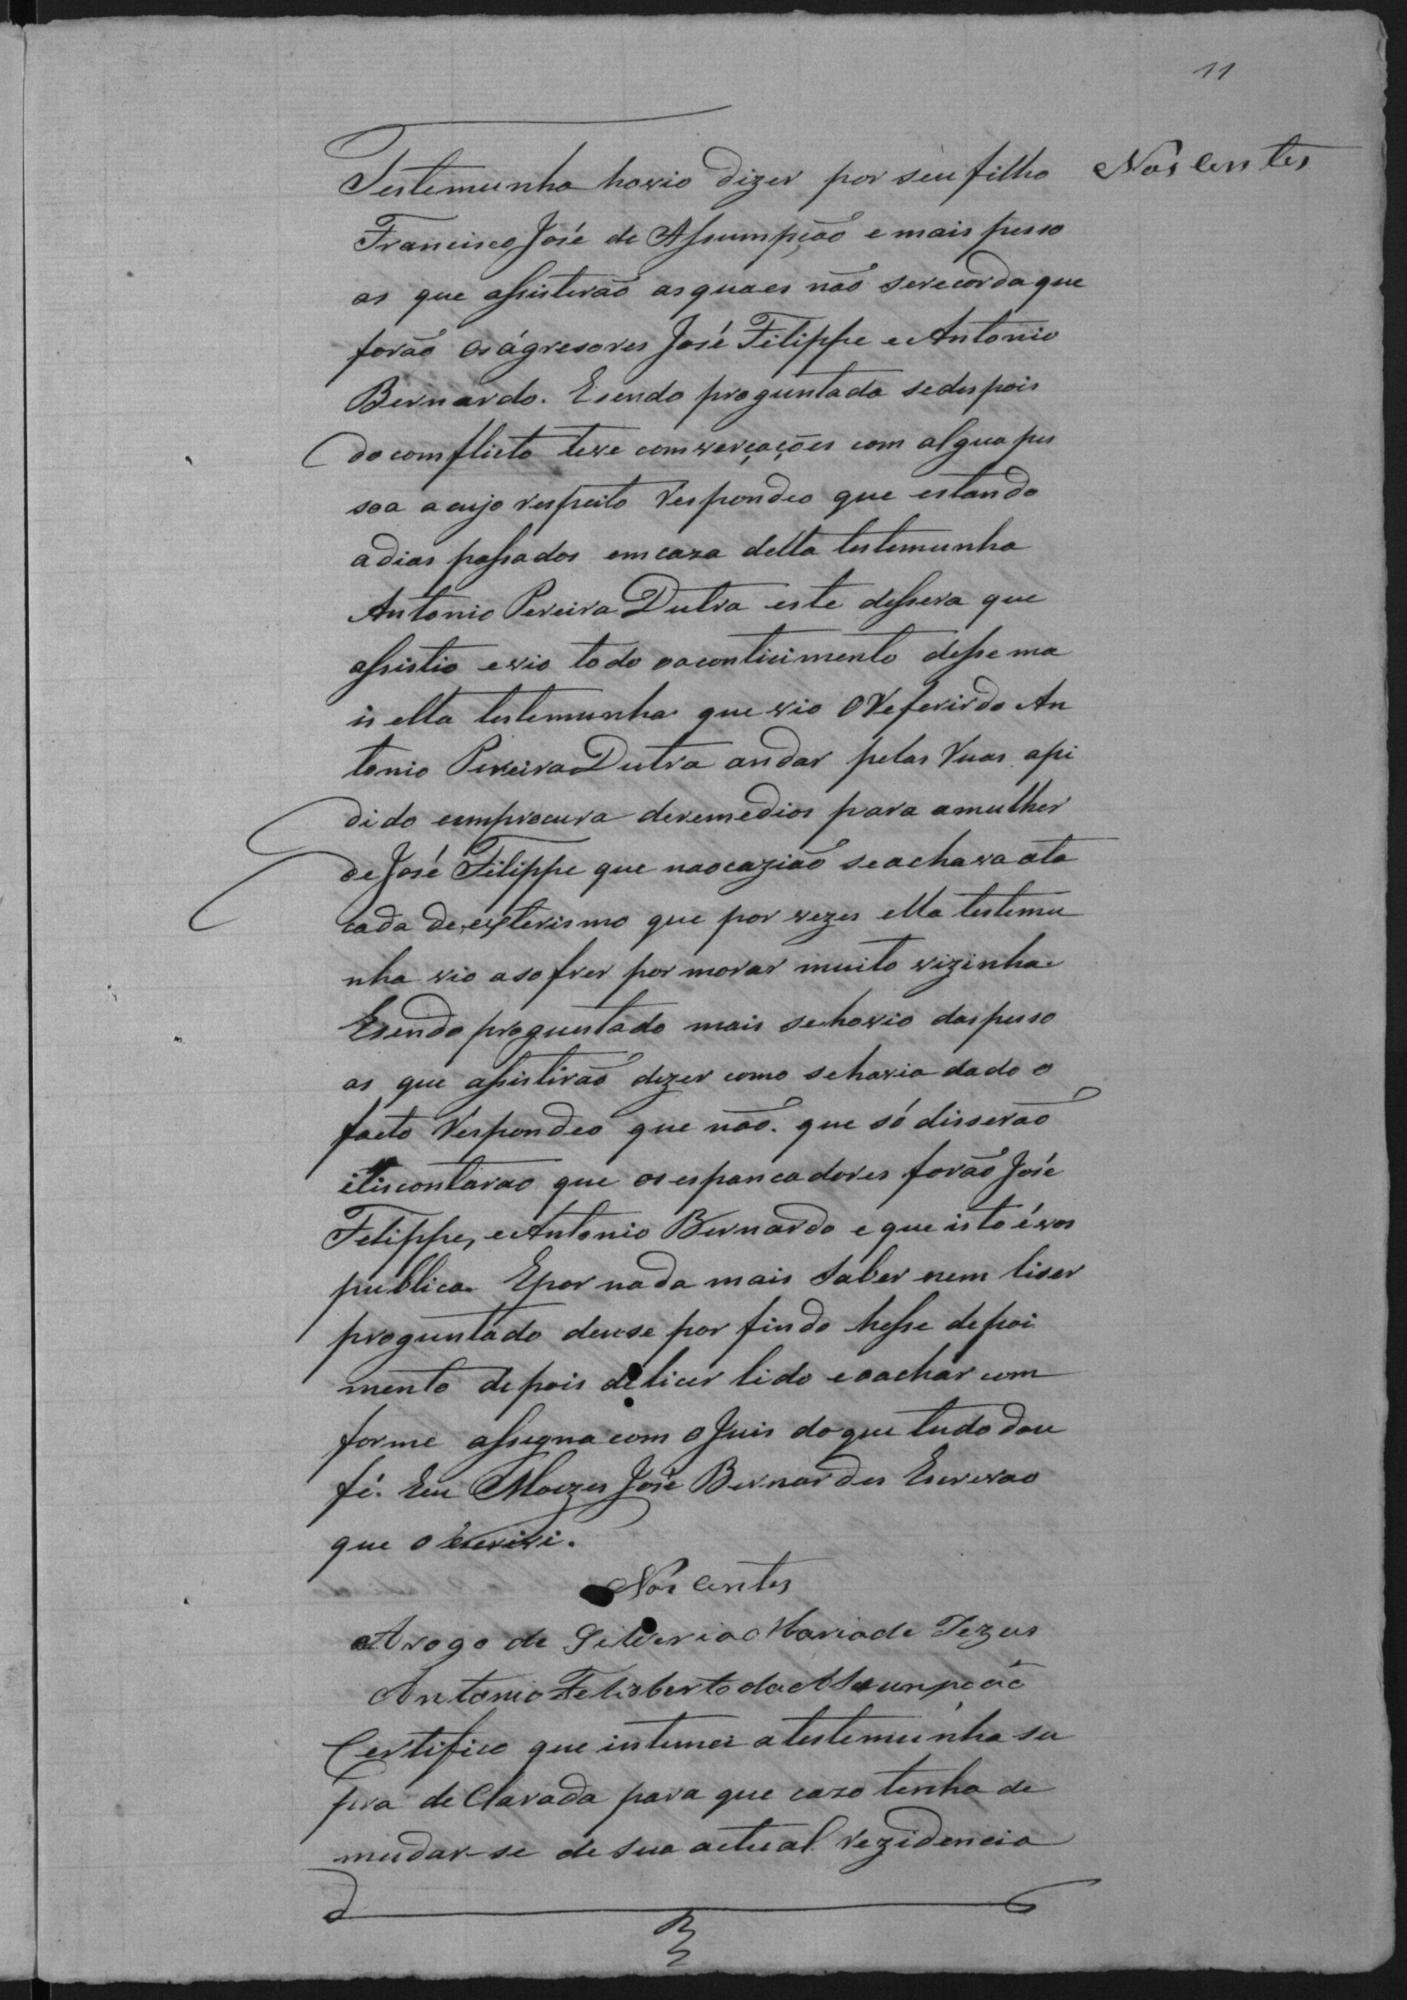 11
Nascentes
Testemunha hovio dizer por seu filho
Francisco José de Assumpção e mais pesso
as que assisterão as quaes não se recorda que
forão os ágresores José Filippe e Antonio
Bernardo. E sendo proguntada se despois
do comflicto teve comverçações com algua pes
soa a cujo respeito Respondeo que estando
a dias passados em caza della testemunha
Antonio Pereira Dutra este dessera que
assistio e vio todo o aconticimento desse ma
is ella testemunha que vio o Referirdo An
tonio Pereira Dutra andar pelas Ruas api
dido em procura de remedios para a mulher
de José Filippe que na ocazião se achava ata
cada de, esterismo que por vezes ella testemu
nha vio a sofrer por morar muito vizinha.
E sendo proguntado mais se hovio das pesso
as que assistirão dizer como se havia dado o
facto Respondeo que não. que só disserão
contarão que os espancadores forão José
Felippe, e Antonio Bernardo e que isto é vos
publica. E por nada mais saber nem liser
proguntado deuse por findo hesse depoi
mento depois de licer lido e o achar com
forme assegna com o Juis do que tudo dou
fé. Eu Moezes José Bernardes Escrevao
que o Escrivi.
Nascentes
A rogo de Silveria Maria de Jezus
Antonio Felisberto da Assumpção
Certifico que intemei a testemunha su
pra declarada para que cazo tenha de
mudar-se de sua actual rezidencia